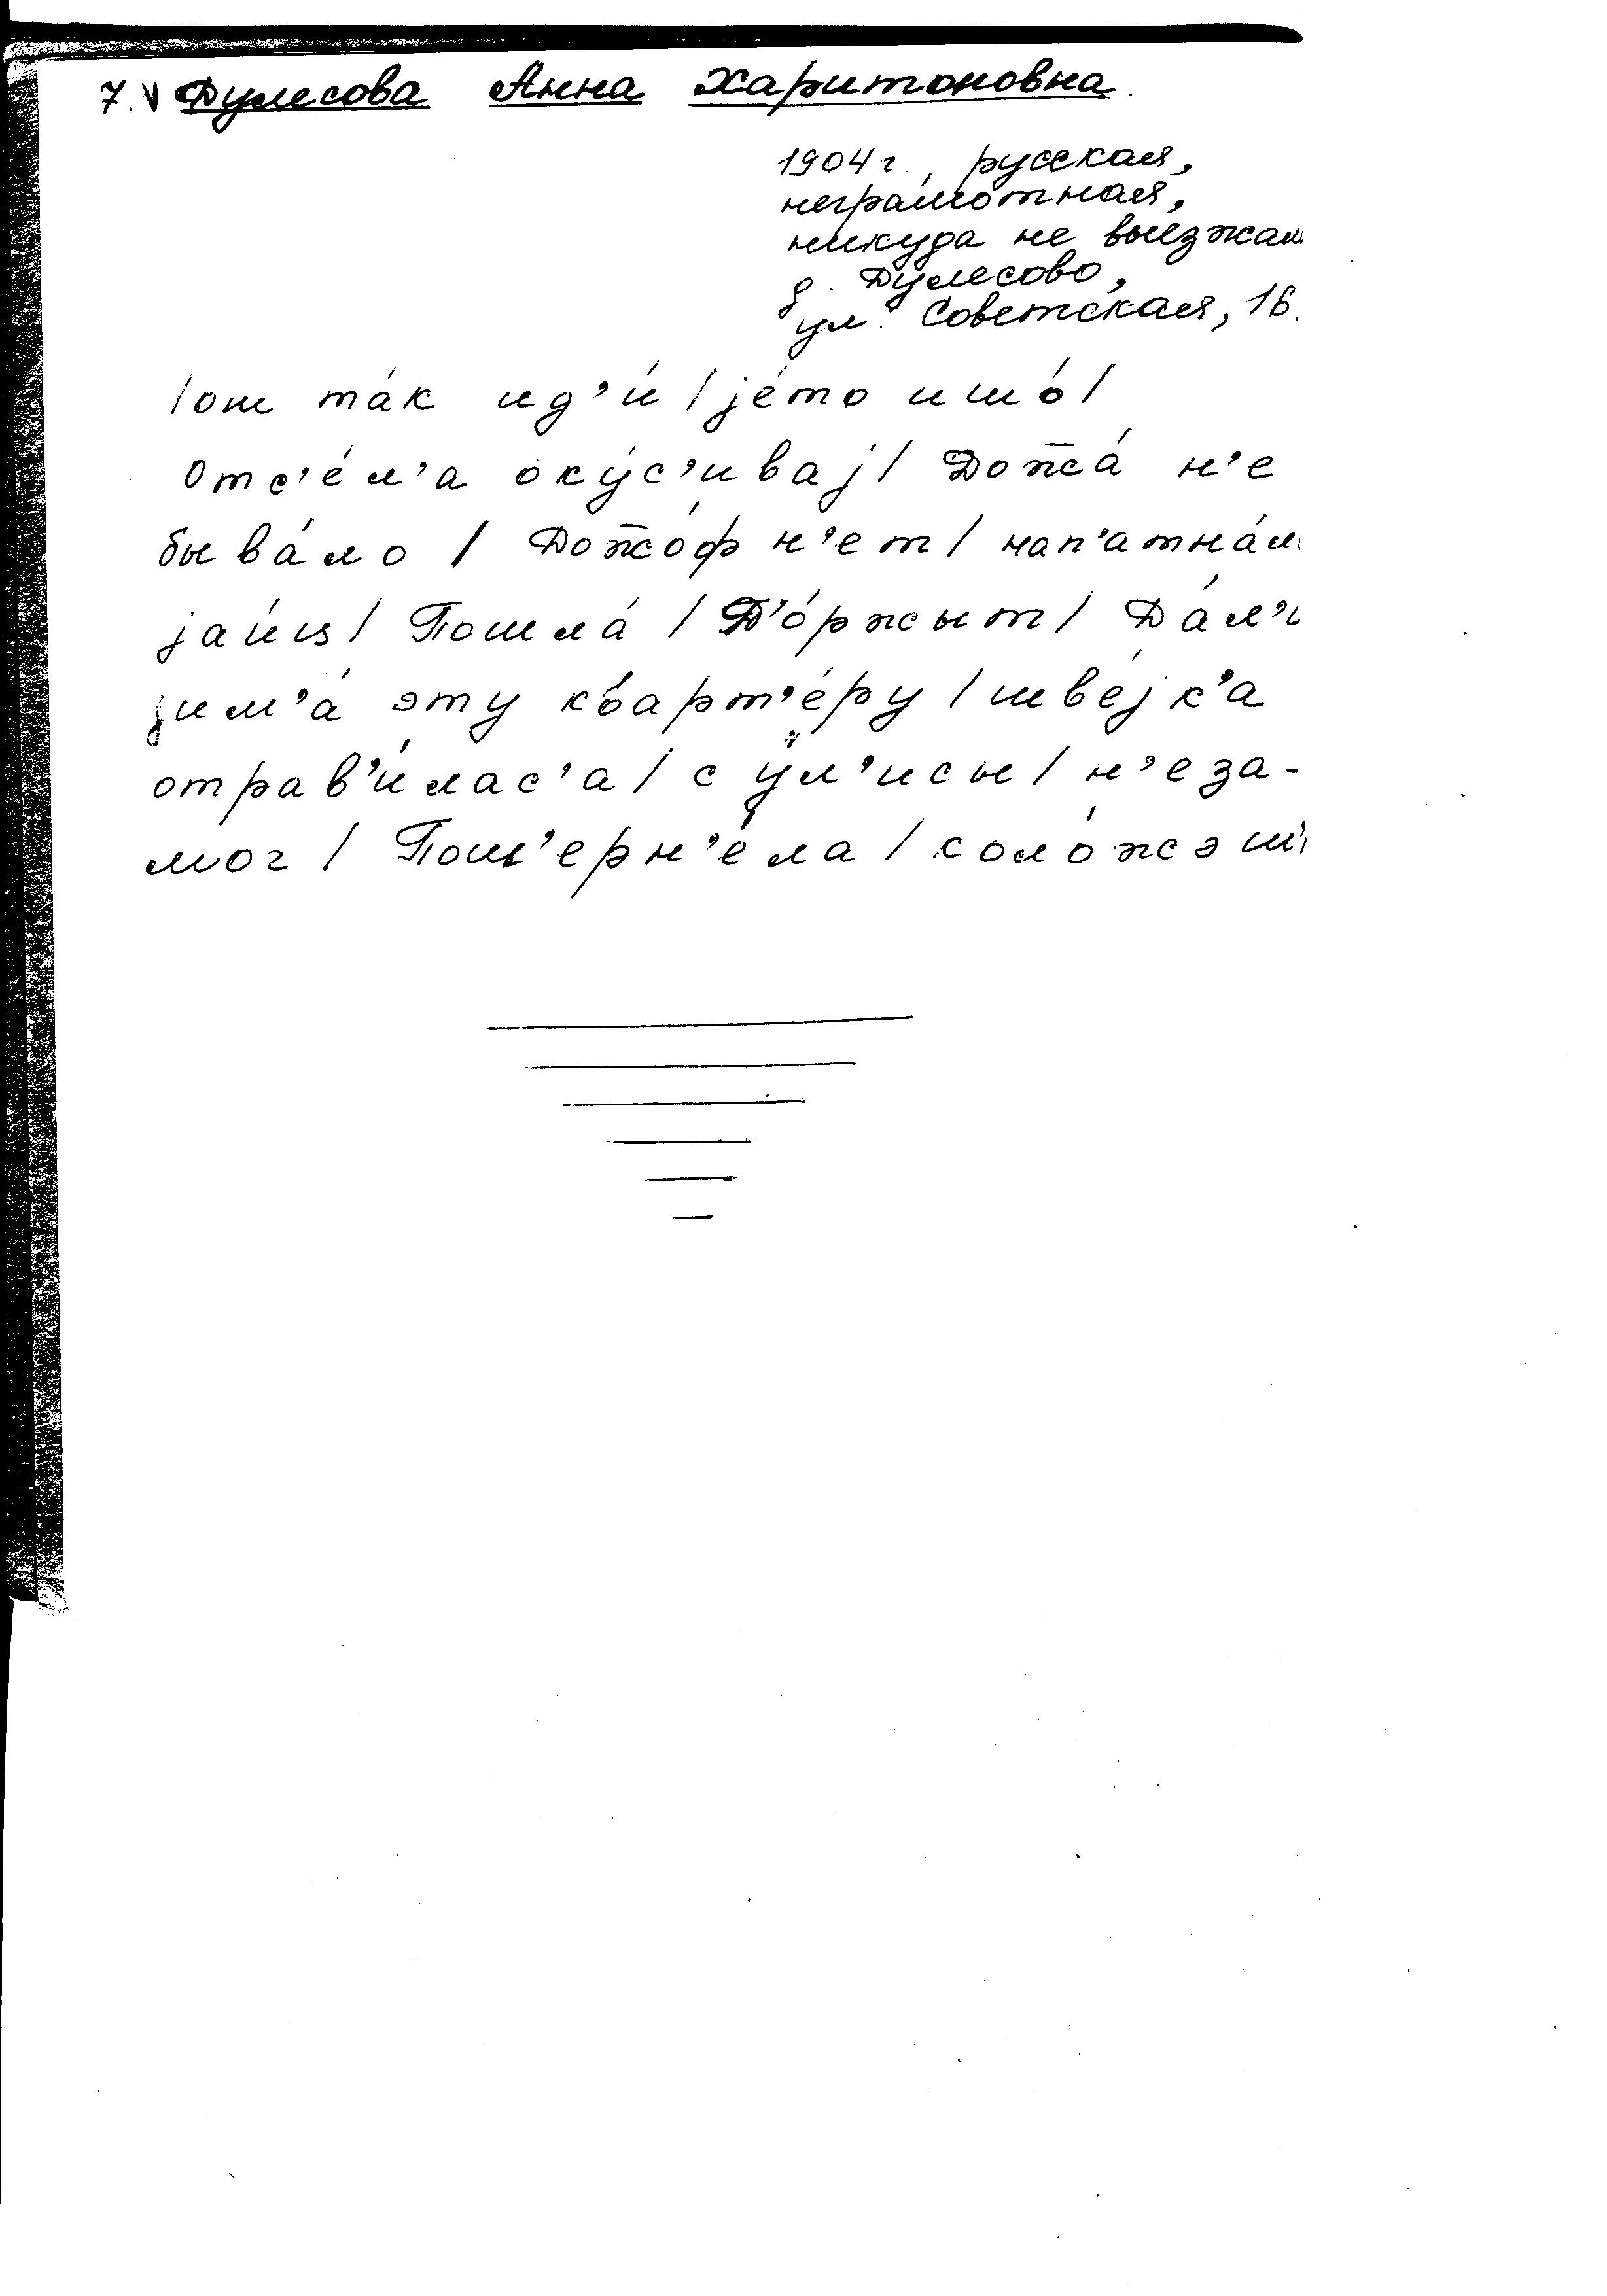 7. V Дулесова Анна Харитоновна.
1904 г., русская,
неграмотная,
никуда не выезжал
д. Дулесово,
ул. Советская, 16.
/ош та́к ид’и́ / jе́то ишо́ /
Отс’е́л’а оку́с’иваj / Дожжа́ н’е
быва́ло / Дожжо́ф н’ет /
jаи́ц / Пошла́ / Д’о́ржыт / Да́л’и
jим’а́ эту кварт’е́ру / шве́jк’а
отрав’и́лас’а / с у́л’исы / н’е за-
мог / Пош’ерн’е́ла /